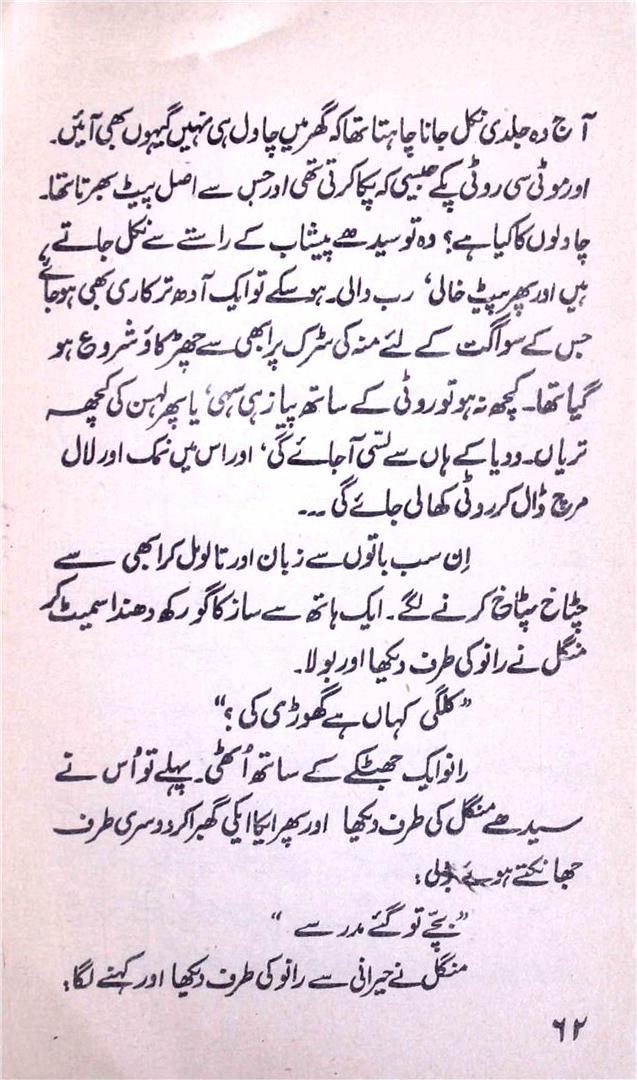 آج وہ جلدی نکل جانا چاہتا تھا کہ گھر میں چاول ہی نہیں گیہوں بھی آئیں۔
اور موٹی سی روٹی پکے جیسی کہ پکا کرتی تھی اور جس سے اصل پیٹ بھرتا تھا۔
چاولوں کا کیا ہے؟ وہ تو سیدھے پیشاب کے راستے سے نکل جاتے
ہیں اور پھر پیٹ خالی، رب والی۔ ہو سکے تو ایک آدھ ترکاری بھی ہو جائے،
جس کے سواگت کے لئے منہ کی سڑک پر ابھی سے چھڑکاؤ شروع ہو
گیا تھا۔ کچھ نہ ہو تو روٹی کے ساتھ پیاز ہی سہی، یا پھر لہسن کی کچھ
تریاں۔ ودیا کے ہاں سے لسّی آ جائے گی، اور اس میں نمک اور لال
مرچ ڈال کر روٹی کھالی جائے گی ۔۔۔
اِن سب باتوں سے زبان اور تالو مل کر ابھی سے
چٹاخ پٹاخ کرنے لگے۔ ایک ہاتھ سے ساز کا گورکھ دھندا سمیٹ کر
منگل نے رانو کی طرف دیکھا اور بولا۔
”کلگی کہاں ہے گھوڑی کی؟“
رانو ایک جھٹکے کے ساتھ اُٹھی۔ پہلے تو اُس نے
سیدھے منگل کی طرف دیکھا اور پھر ایکا ایکی گھبرا کر دوسری طرف
جھانکتے ہوئے بولی:
”بچّے تو گئے مدرسے“
منگل نے حیرانی سے رانو کی طرف دیکھا اور کہنے لگا:
۶۲